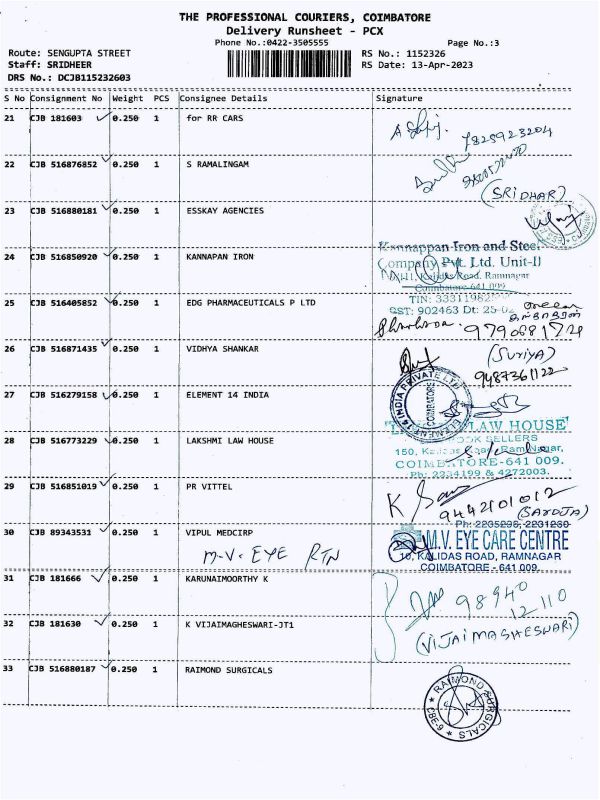 THE PROFESSIONAL COURIERS, COIMBATORE
Delivery Runsheet - PCX
Phone No.:0422-3505555
Page No.:3
Route: SENGUPTA STREET
RS No.: 1152326
Staff: SRIDHEER
RS Date: 13-Apr-2023
DRS No.: DCJB115232603
S No Consignment No Weight PCS Consignee Details Signature
21 CJB 181603 0.250 1 for RR CARS
7825923204
22 CJB 516876852 0.250 1 S RAMALINGAM
(SRIDHAR)
23 CJB 516880181 0.250 1 ESSKAY AGENCIES
Kannappan Iron and Steel
24 CJB 516850920 0.250 1 KANNAPAN IRON
Company Pvt. Ltd. Unit-II
Kalidas Road, Ramnagar
Coimbatore-641 009
25 CJB 516405852 0.250 1 EDG PHARMACEUTICALS P LTD
TIN: 33311982
CST: 902463 Dt: 25-02
9790681724
26 CJB 516871435 0.250 1 VIDHYA SHANKAR
(Suriya)
9487361122
27 CJB 516279158 0.250 1 ELEMENT 14 INDIA
ELEMENT 14 INDIA PRIVATE LTD
COIMBATORE
LAW HOUSE
28 CJB 516773229 0.250 1 LAKSHMI LAW HOUSE
BOOK SELLERS
150, Kalidas Road, RamNagar,
COIMBATORE-641 009.
Ph: 2334199 & 4272003.
29 CJB 516851019 0.250 1 PR VITTEL
9442101012
(SAROJA)
Ph: 2235236, 2231260
30 CJB 89343531 0.250 1 VIPUL MEDCIRP
M.V. EYE RTN
M.V. EYE CARE CENTRE
10, KALIDAS ROAD, RAMNAGAR
COIMBATORE - 641 009.
31 CJB 181666 0.250 1 KARUNAIMOORTHY K
98940
12110
32 CJB 181630 0.250 1 K VIJAIMAGHESWARI-JT1
(VIJAIMAGHESWARI)
33 CJB 516880187 0.250 1 RAIMOND SURGICALS
RAIMOND SURGICALS
CBE-9